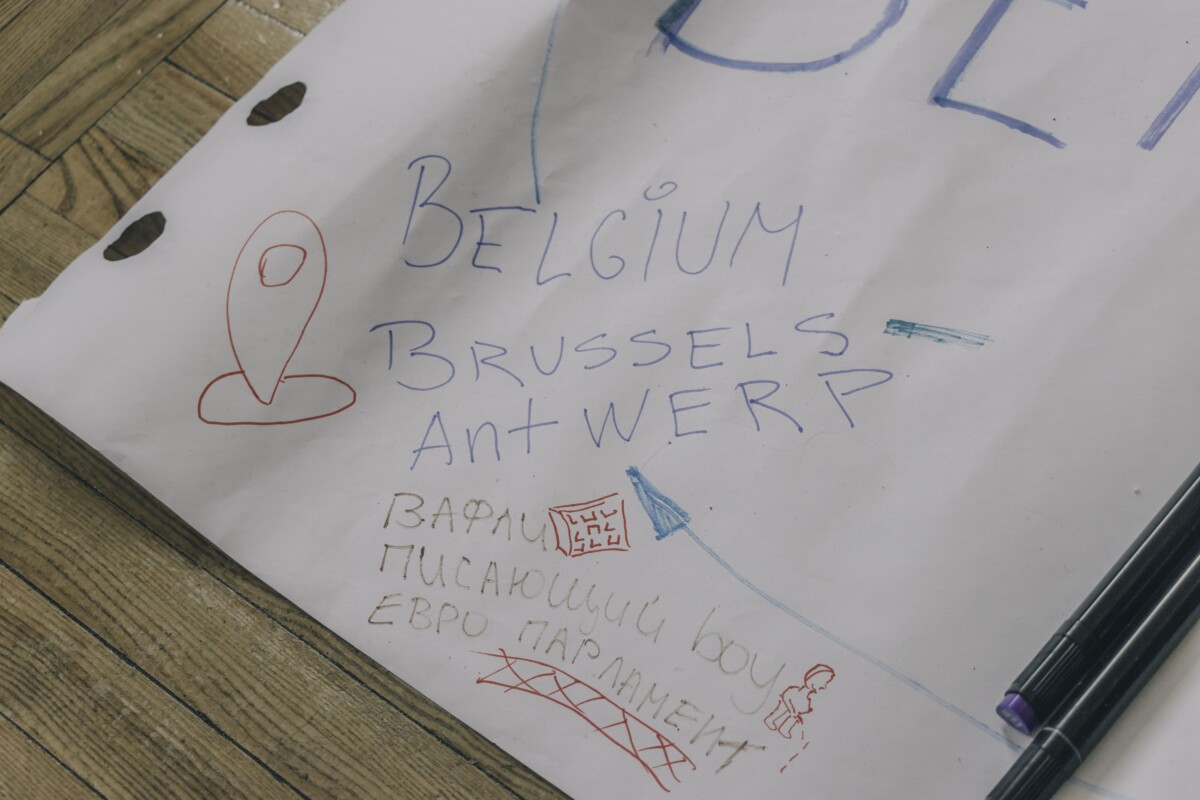 BELGIUM
BRUSSELS
AntWERP
ВАФЛИ
ПИСАЮЩИЙ boy
ЕВРО ПАРЛАМЕНТ